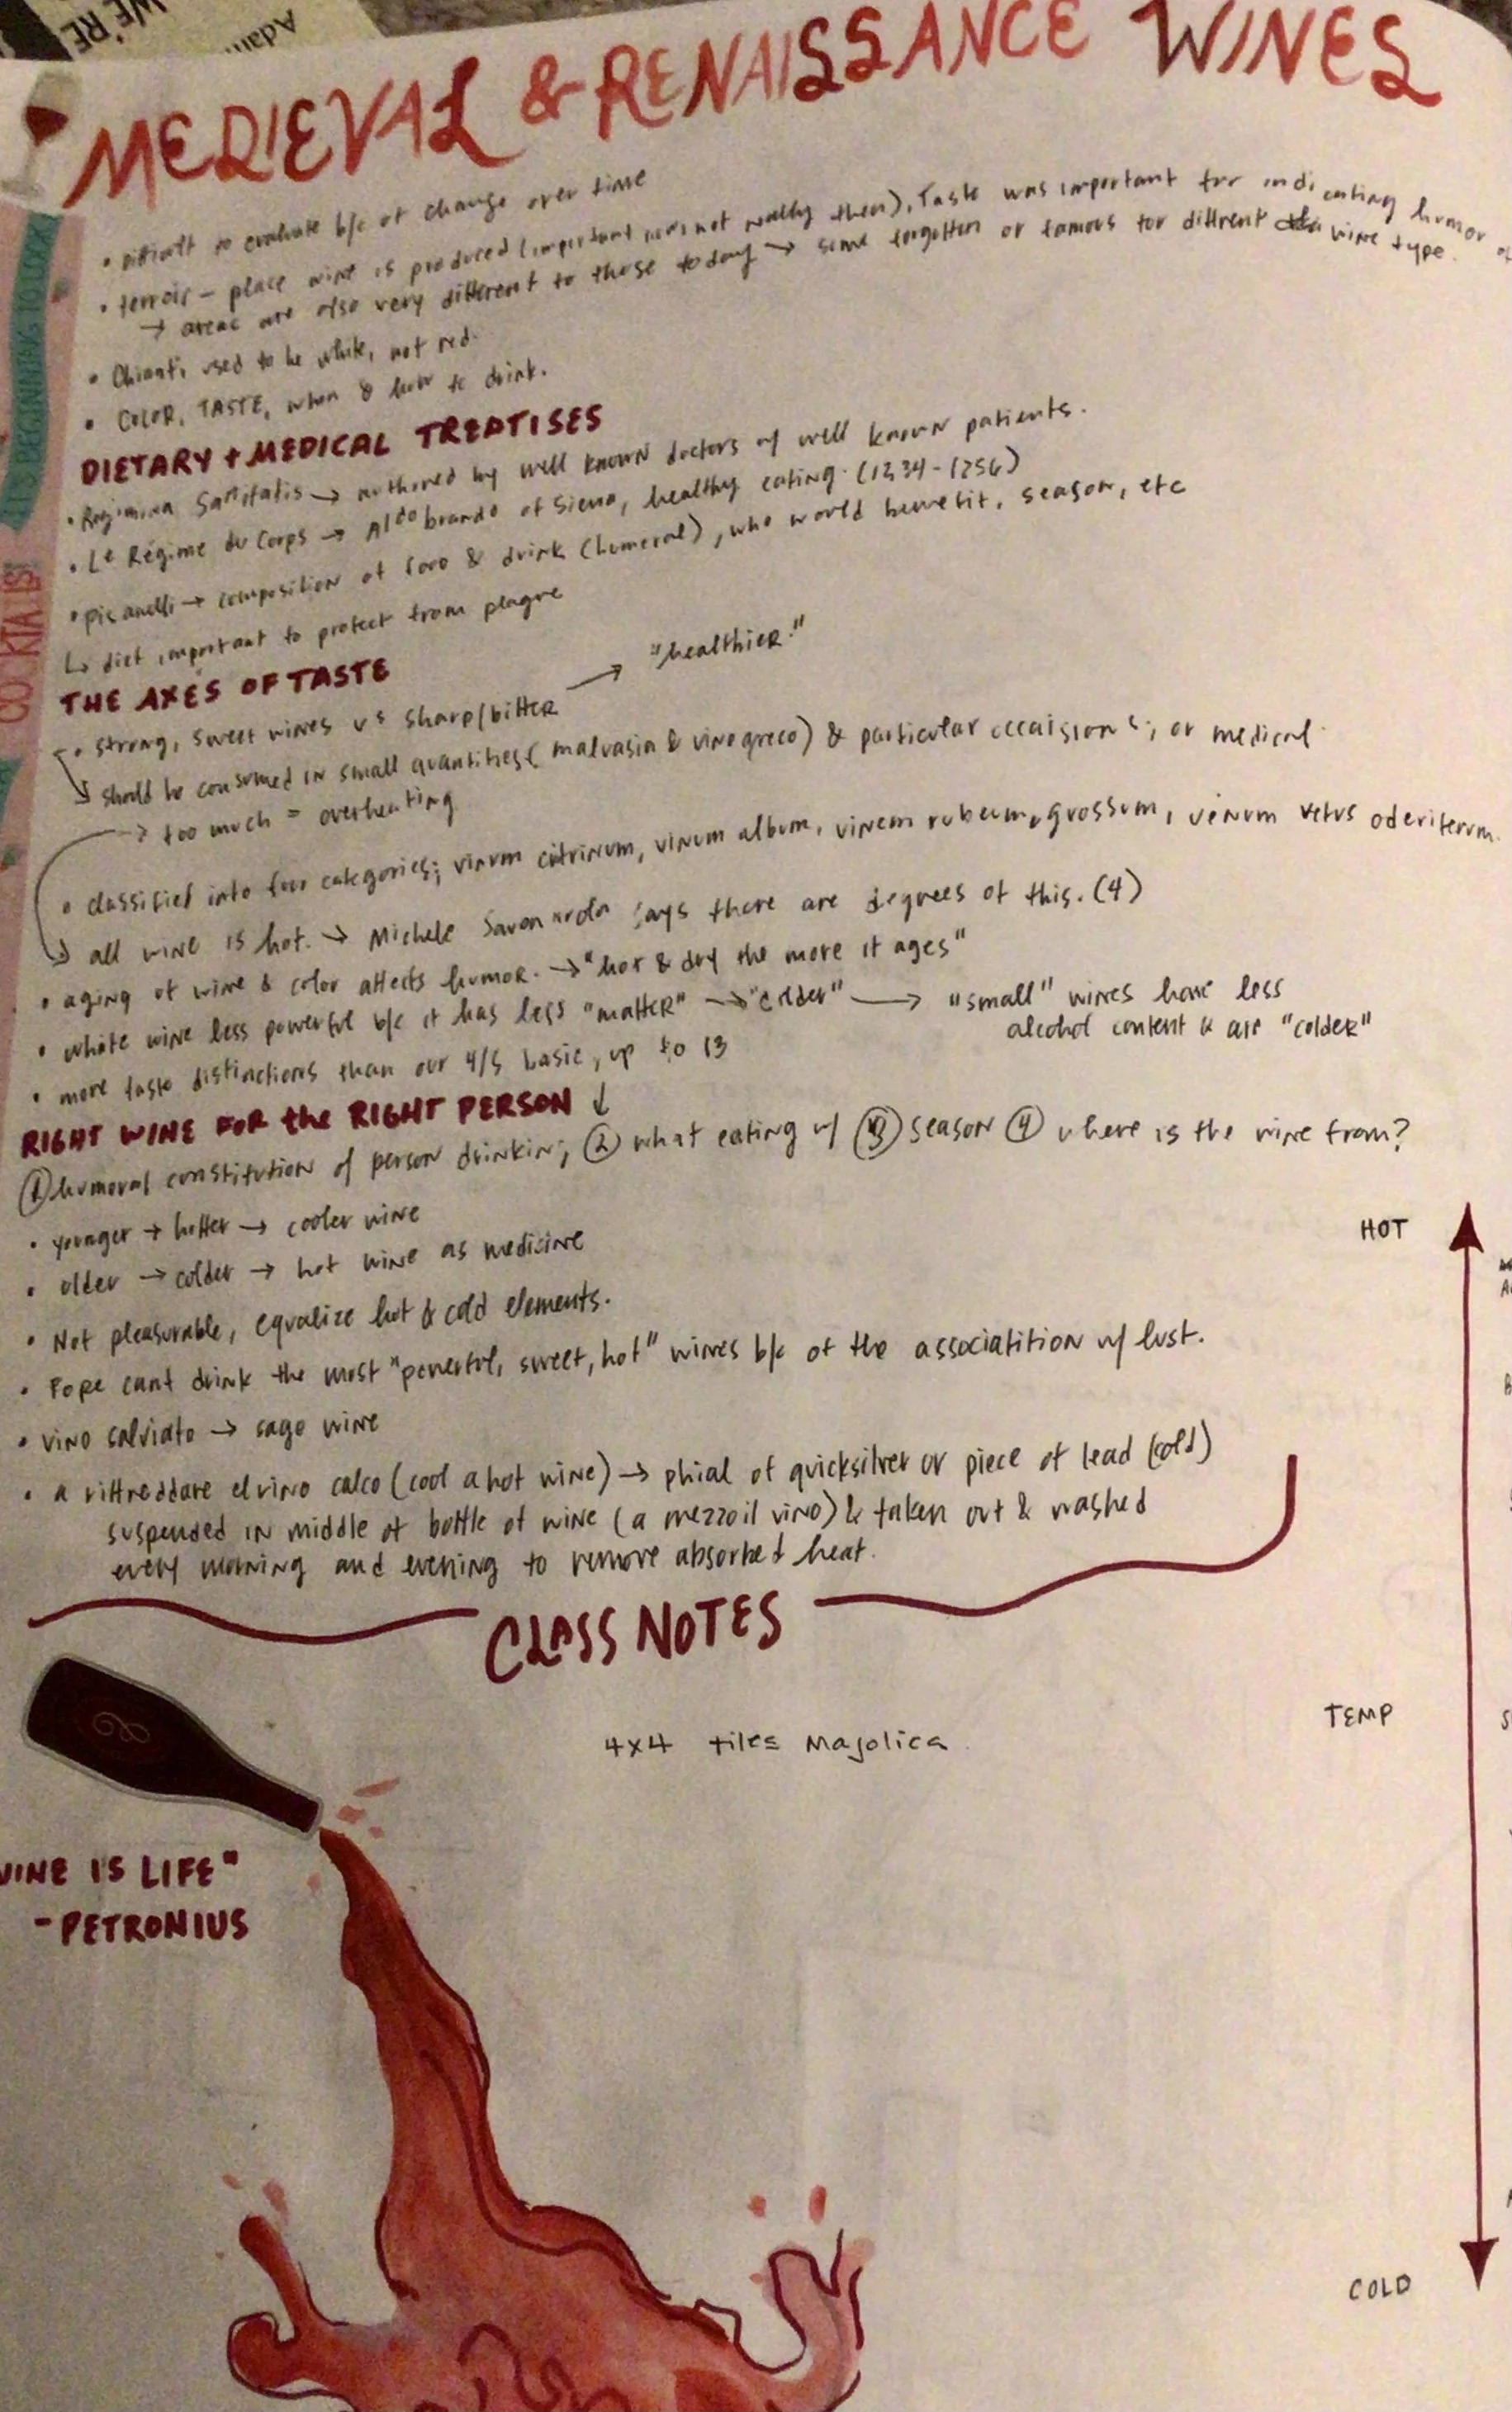 WE'RE
Adam
MEDIEVAL & RENAISSANCE WINES
IT'S BEGINNING TO LOOK
• difficult to evaluate b/c of change over time
• terroir - place wine is produced (important now, not really then). Taste was important for indicating humor of
→ areas are also very different to those today → some forgotten or famous for different wine type.
• Chianti used to be white, not red.
• COLOR, TASTE, when & how to drink.
DIETARY + MEDICAL TREATISES
• Regimina Sanitatis → authored by well known doctors w/ well known patients.
• Le Régime du Corps → Aldobrando of Siena, healthy eating. (1234-1256)
• Pisanelli → composition of food & drink (humoral), who would benefit, season, etc
↳ diet important to protect from plague
THE AXES OF TASTE
• strong, sweet wines vs sharp/bitter → "healthier."
↳ should be consumed in small quantities (malvasia & vino greco) & particular occaisions, or medical.
→ too much = overheating
• classified into four categories; vinum citrinum, vinum album, vinem rubeum, grossum, venum vetus oderiferum.
↳ all wine is hot. → Michele Savonarola says there are degrees of this. (4)
• aging of wine & color affects humor. → "hot & dry the more it ages"
• white wine less powerful b/c it has less "matter" → "colder" → "small" wines have less
alcohol content & are "colder"
• more taste distinctions than our 4/5 basic, up to 13
RIGHT WINE FOR the RIGHT PERSON ↓
① humoral constitution of person drinkin; ② what eating w/ ③ season ④ where is the wine from?
• younger → hotter → cooler wine
• older → colder → hot wine as medicine
• Not pleasurable, equalize hot & cold elements.
• Pope cant drink the most "powerful, sweet, hot" wines b/c of the associatition w/ lust.
• vino salviato → sage wine
• a riffreddare el vino calco (cool a hot wine) → phial of quicksilver or piece of lead (cold)
suspended in middle of bottle of wine (a mezzo il vino) & taken out & washed
every morning and evening to remove absorbed heat.
HOT
CLASS NOTES
4x4 tiles Majolica
TEMP
WINE IS LIFE"
- PETRONIUS
COLD